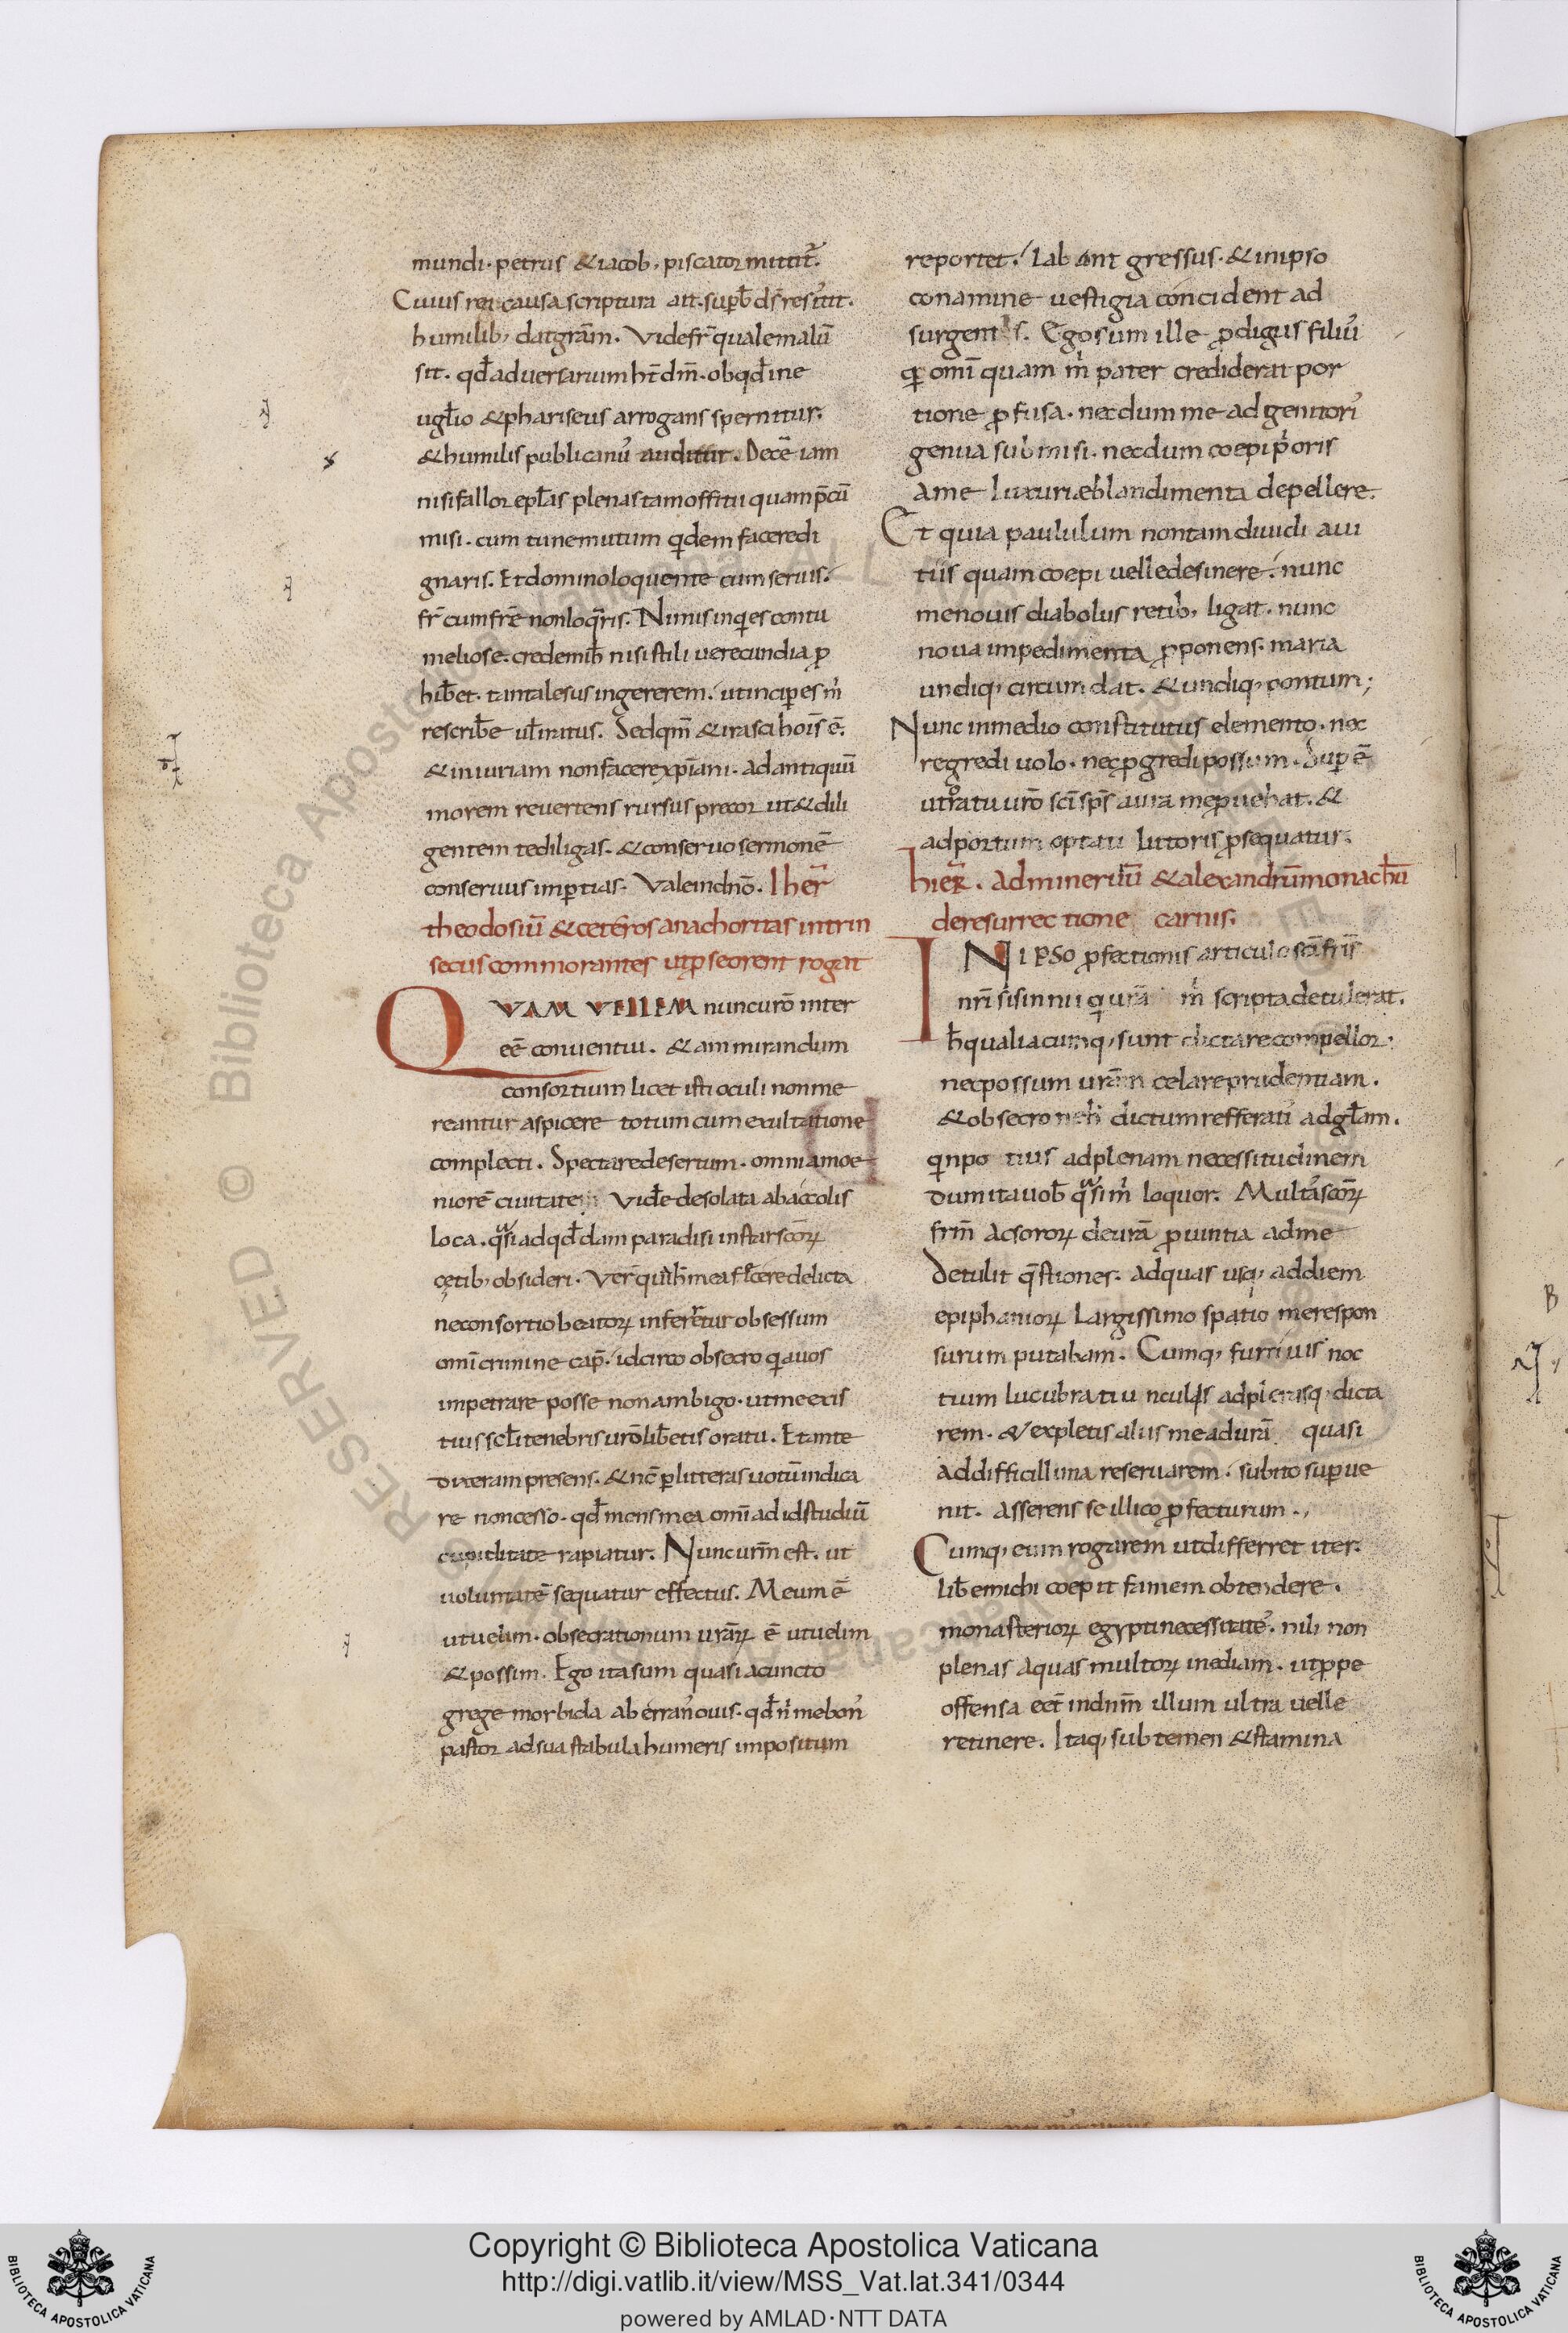 mundi· petrus &iacob, piscator mittit᷑.
Cuius rei causa scriptura ait. supƀ ds̄ resis̄tit.
humilib, dat grām. Vide fr̄ quale malū
sit. qđ aduersarium ht̄ dm̄. ob qđ in e
ugƚio &phariseus arrogans spernitur.
&humilis publicanꝰ auditur. Decē iam
nisi fallor epƚas plenas tam offitii quam p̄cū
misi. cum tu nemutum qdem facere di
gnaris. Et domino loquente cum seruis.
fr̄ cum fr̄e non loq̄ris. Nimis inq es contu
meliose. crede mih̄ nisi stili uerecundia ꝓ
hiƀet. tanta lesus ingererem. ut inciꝑes m
rescriƀe uƚ iratus. Sed qm̄ &irasci hois̄ ē.
&iniuriam non facere xp̄iani. ad antiquū
morem reuertens rursus precor ut &dili
gentem te diligas. &conseruo sermonē
conseruus imꝑtias. Vale in dn̄o. Iher̄
theodosiū &ceteros anachoritas intrin
secus commorantes ut ꝓ se orent rogat
QVAM VELLEM nunc uro inter
eē conuentui. &ammirandum
consortium licet isti oculi non me
reantur aspicere totum cum exultatione
complecti. Spectare desertum. omni amoe
niorē ciuitate Viđe desolata ab accolis
loca. q̄si ad qđdam paradisi instar sc̄oꝝ
cętib, obsideri. Ver̄ delicta
ne consortio beatoꝝ inferr̄etur obsessum
omi crimine cap̄. idcirco obsecro q a uos
impetrare posse non ambigo. ut me exis
tius scƚi tenebris uro liƀetis oratu. Et ante
dixeram presens. &nc̄ ꝑ litteras uotū indica
re non cesso. qđ mens mea omi ad id studiū
cupiditate rapiatur. Nunc urm̄ est. ut
uoluntatē sequatur effectus. Meum ē
ut uelim. obsecrationum uraꝝ ē ut uelim
&possim. Ego ita sum quasi a cuncto
grege morbida aberrans̄ ouis. qđ n me bonꝰ
pastor ad sua stabula humeris impositum
reportet. labant gressus. &in ipso
conamine uestigia concident ad
surgentis. Ego sum ille ꝓdigus filiꝰ
q omi quam m pater crediderat por
tione ꝓfusa. necdum me ad genitorı̄
genua submisi. necdum coepi p̄oris
a me luxuriæ blandimenta depellere.
Et quia paululum non tam diuidi aui
tiis quam coepi uelle desinere. nunc
me nouis diabolus retib, ligat. nunc
noua impedimenta ꝓponens. maria
undiq, circumdat. &undiq, pontum;
Nunc in medio constitutus elemento. nec
regredi uolo. nec ꝓgredi possum. Suꝑ ē
ut oratu uro sc̄i sps̄ aura me ꝓuehat. &
ad portum optati littoris ꝓsequatur.
hier̄. ad minerium &alexandrum monachū
de resurrectione carnis.
IN IPSO ꝓfectionis articulo sc̄i fris̄
nri sisinnii q ura m scripta detulerat.
h̄ qualiacumq, sunt dictare compellor.
nec possum uram celare prudentiam.
&obsecro dictum refferatı̄ ad gƚam.
qnpo tius ad plenam necessitudinem
dum ita uoƀ q̄si m loquor. Multas̄ sc̄oꝝ
frm̄ ac sororꝝ de ura ꝓuintia ad me
detulit q̄stiones. ad quas usq, ad diem
epiphanioꝝ largissimo spatio me respon
surum putabam. Cumq, furtiuis noc
tium lucubratiunculis ad plerasq, dicta
rem. &expletis aliis me ad urā quasi
ad difficillima reseruarem. subito suꝑue
nit. asserens se illico ꝓfecturum.,
Cumq, eum rogarem ut differret iter.
liƀe michi coepit famem obtendere.
monasteriorꝝ egypti necessitatē. nili non
plenas aquas multorꝝ inediam. ut ꝓpe
offensa eēt in dnm̄ illum ultra uelle
retinere. Itaq, subtemen &stamina
Copyright © Biblioteca Apostolica Vaticana
http://digi.vatlib.it/view/MSS_Vat.lat.341/0344
powered by AMLAD·NTT DATA